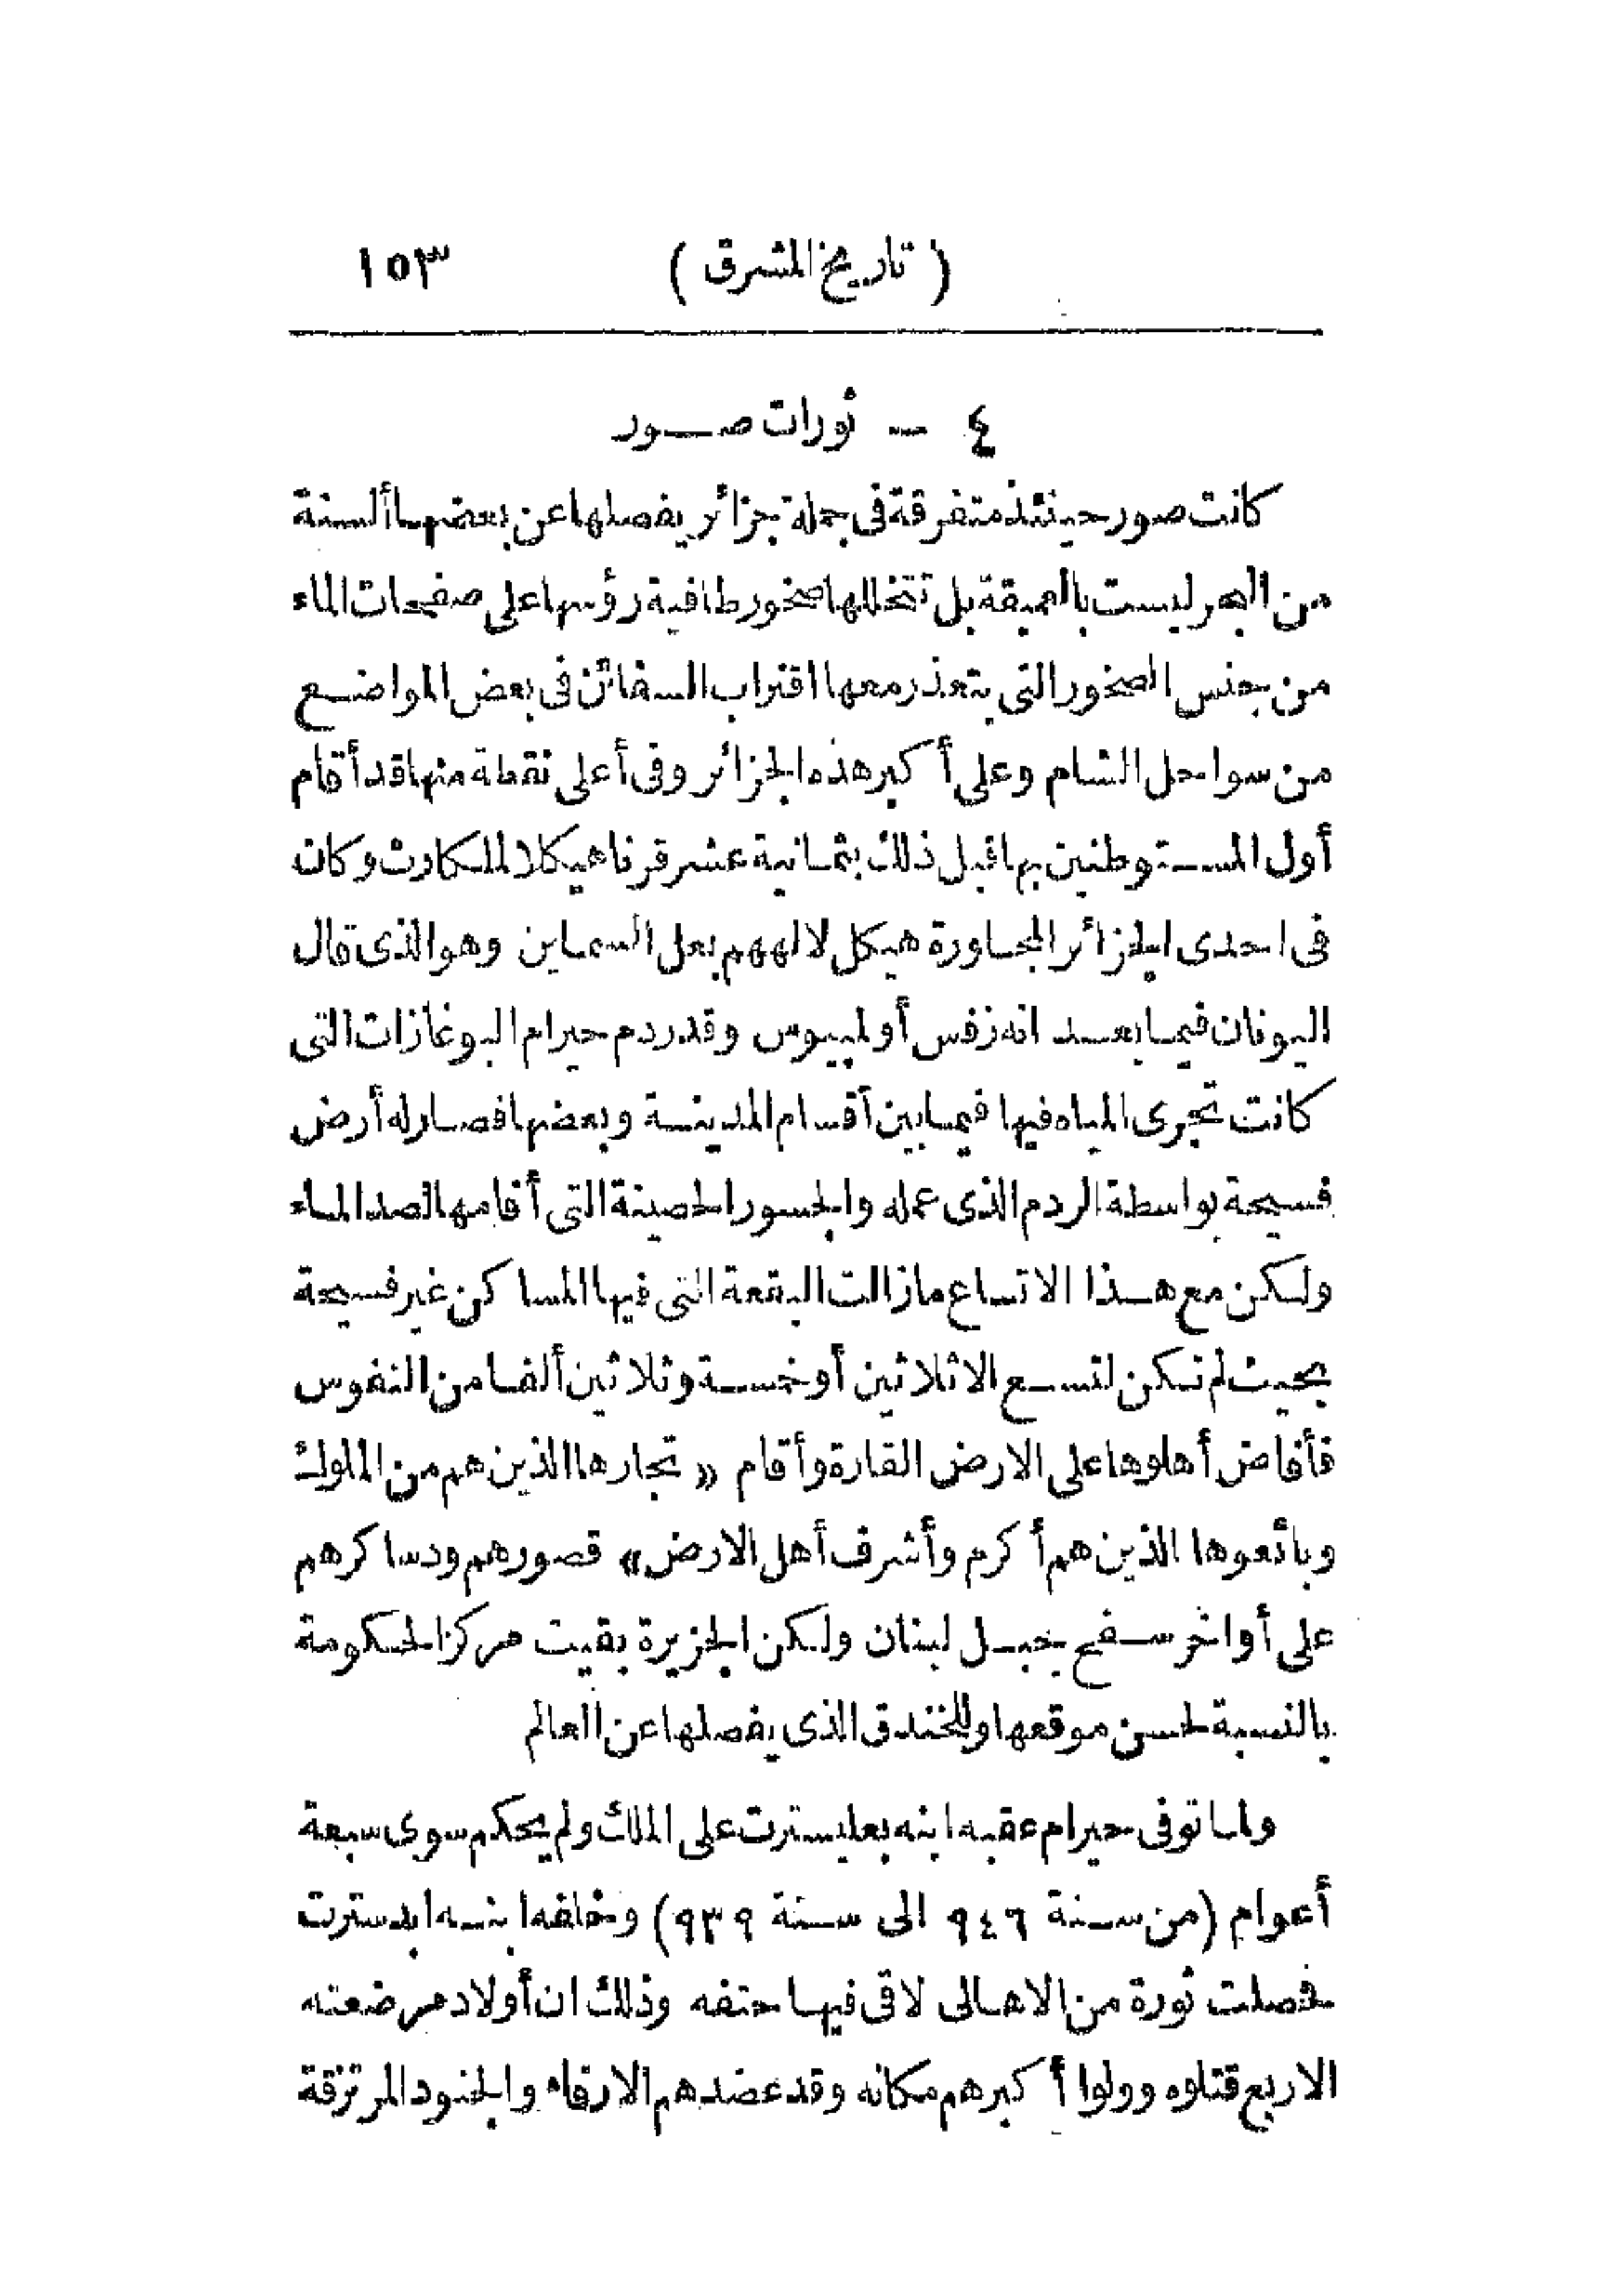 ( تاريخ المشرق ) ١٥٣
٤ - ثورات صور
كانت صور حينئذ متفرقة فى جملة جزائر يفصلها عن بعضها ألسنة
من البحر ليست بالعميقة بل تتخللها صخور طافية رؤسها على صفحات الماء
من جنس الصخور التى يتعذر معها اقتراب السفائن فى بعض المواضع
من سواحل الشام وعلى أكبر هذه الجزائر وفى أعلى نقطة منها قد أقام
أول المستوطنين بها قبل ذلك بثمانية عشر قرنا هيكلا لملكارت وكان
فى احدى الجزائر المجاورة هيكل لالههم بعل السماين وهو الذى قال
اليونان فيما بعد انه زفس أولمبيوس وقد ردم حيرام البوغازات التى
كانت تجرى المياه فيها فيما بين أقسام المدينة وبعضها فصار له أرض
فسيحة بواسطة الردم الذى عمله والجسور الحصينة التى أقامها لصد الماء
ولكن مع هذا الاتساع مازالت البقعة التى فيها المساكن غير فسيحة
بحيث لم تكن لتسع الا ثلاثين أو خمسة وثلاثين ألفا من النفوس
فأفاض أهلوها على الارض القارة وأقام « تجارها الذين هم من الملوك
وبائعوها الذين هم أكرم وأشرف أهل الارض» قصورهم ودساكرهم
على أواخر سفح جبل لبنان ولكن الجزيرة بقيت مركز الحكومة
بالنسبة لحسن موقعها وللخندق الذى يفصلها عن العالم
ولما توفى حيرام عقبه ابنه بعليسترت على الملك ولم يحكم سوى سبعة
أعوام (من سنة ٩٤٦ الى سنة ٩٣٩) وخلفه ابنه ابدسترت
فحصلت ثورة من الاهالى لاقى فيها حتفه وذلك ان أولاد مرضعته
الاربع قتلوه وولوا أكبرهم مكانه وقد عضدهم الارقاء والجنود المرتزقة